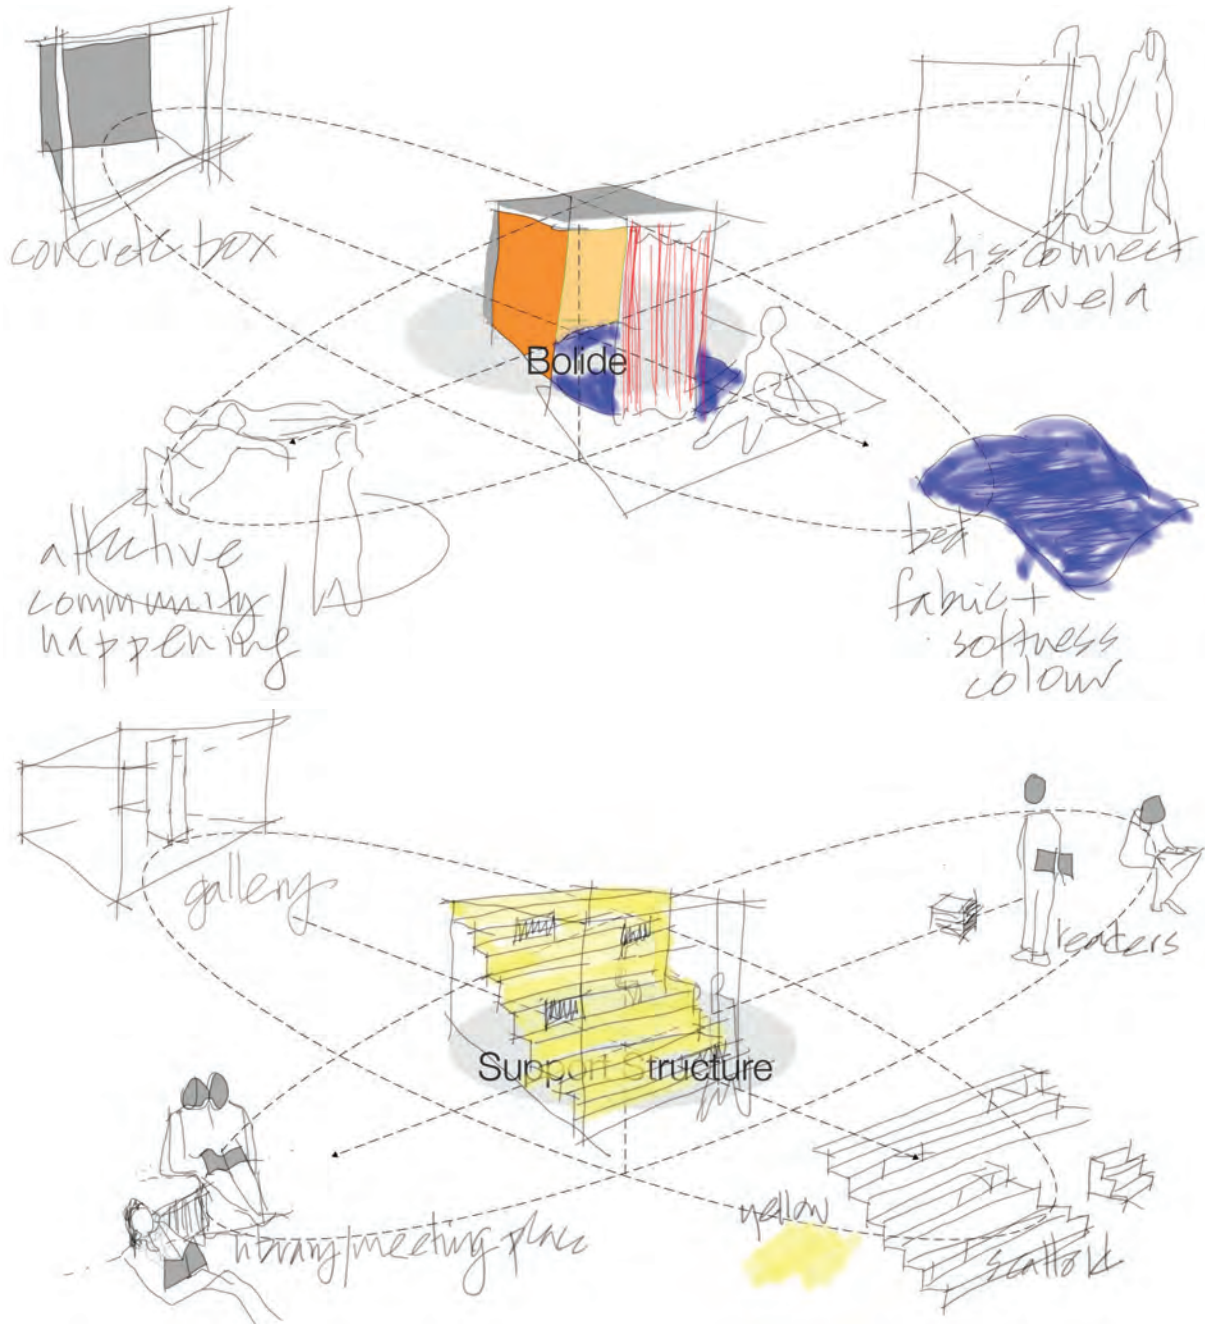 concrete box
disconnect
favela
Bolide
affective
community/
happening
bed
fabric +
softness
colour
gallery
readers
Support Structure
library/meeting place
yellow
scaffold